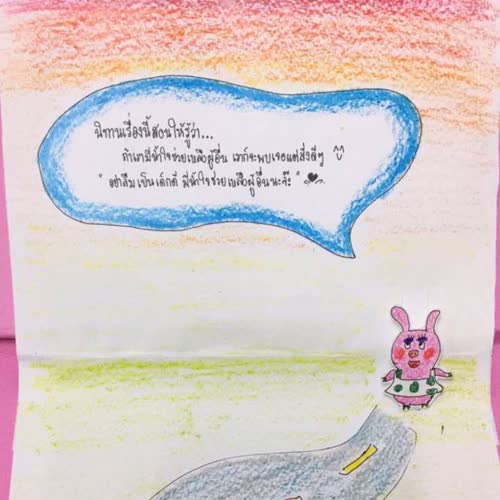 นิทานเรื่องนี้สอนให้รู้ว่า...
ถ้าเรามีน้ำใจช่วยเหลือผู้อื่น เราก็จะพบเจอแต่สิ่งดีๆ
"อย่าลืมเป็นเด็กดี มีน้ำใจช่วยเหลือผู้อื่นนะจ๊ะ"